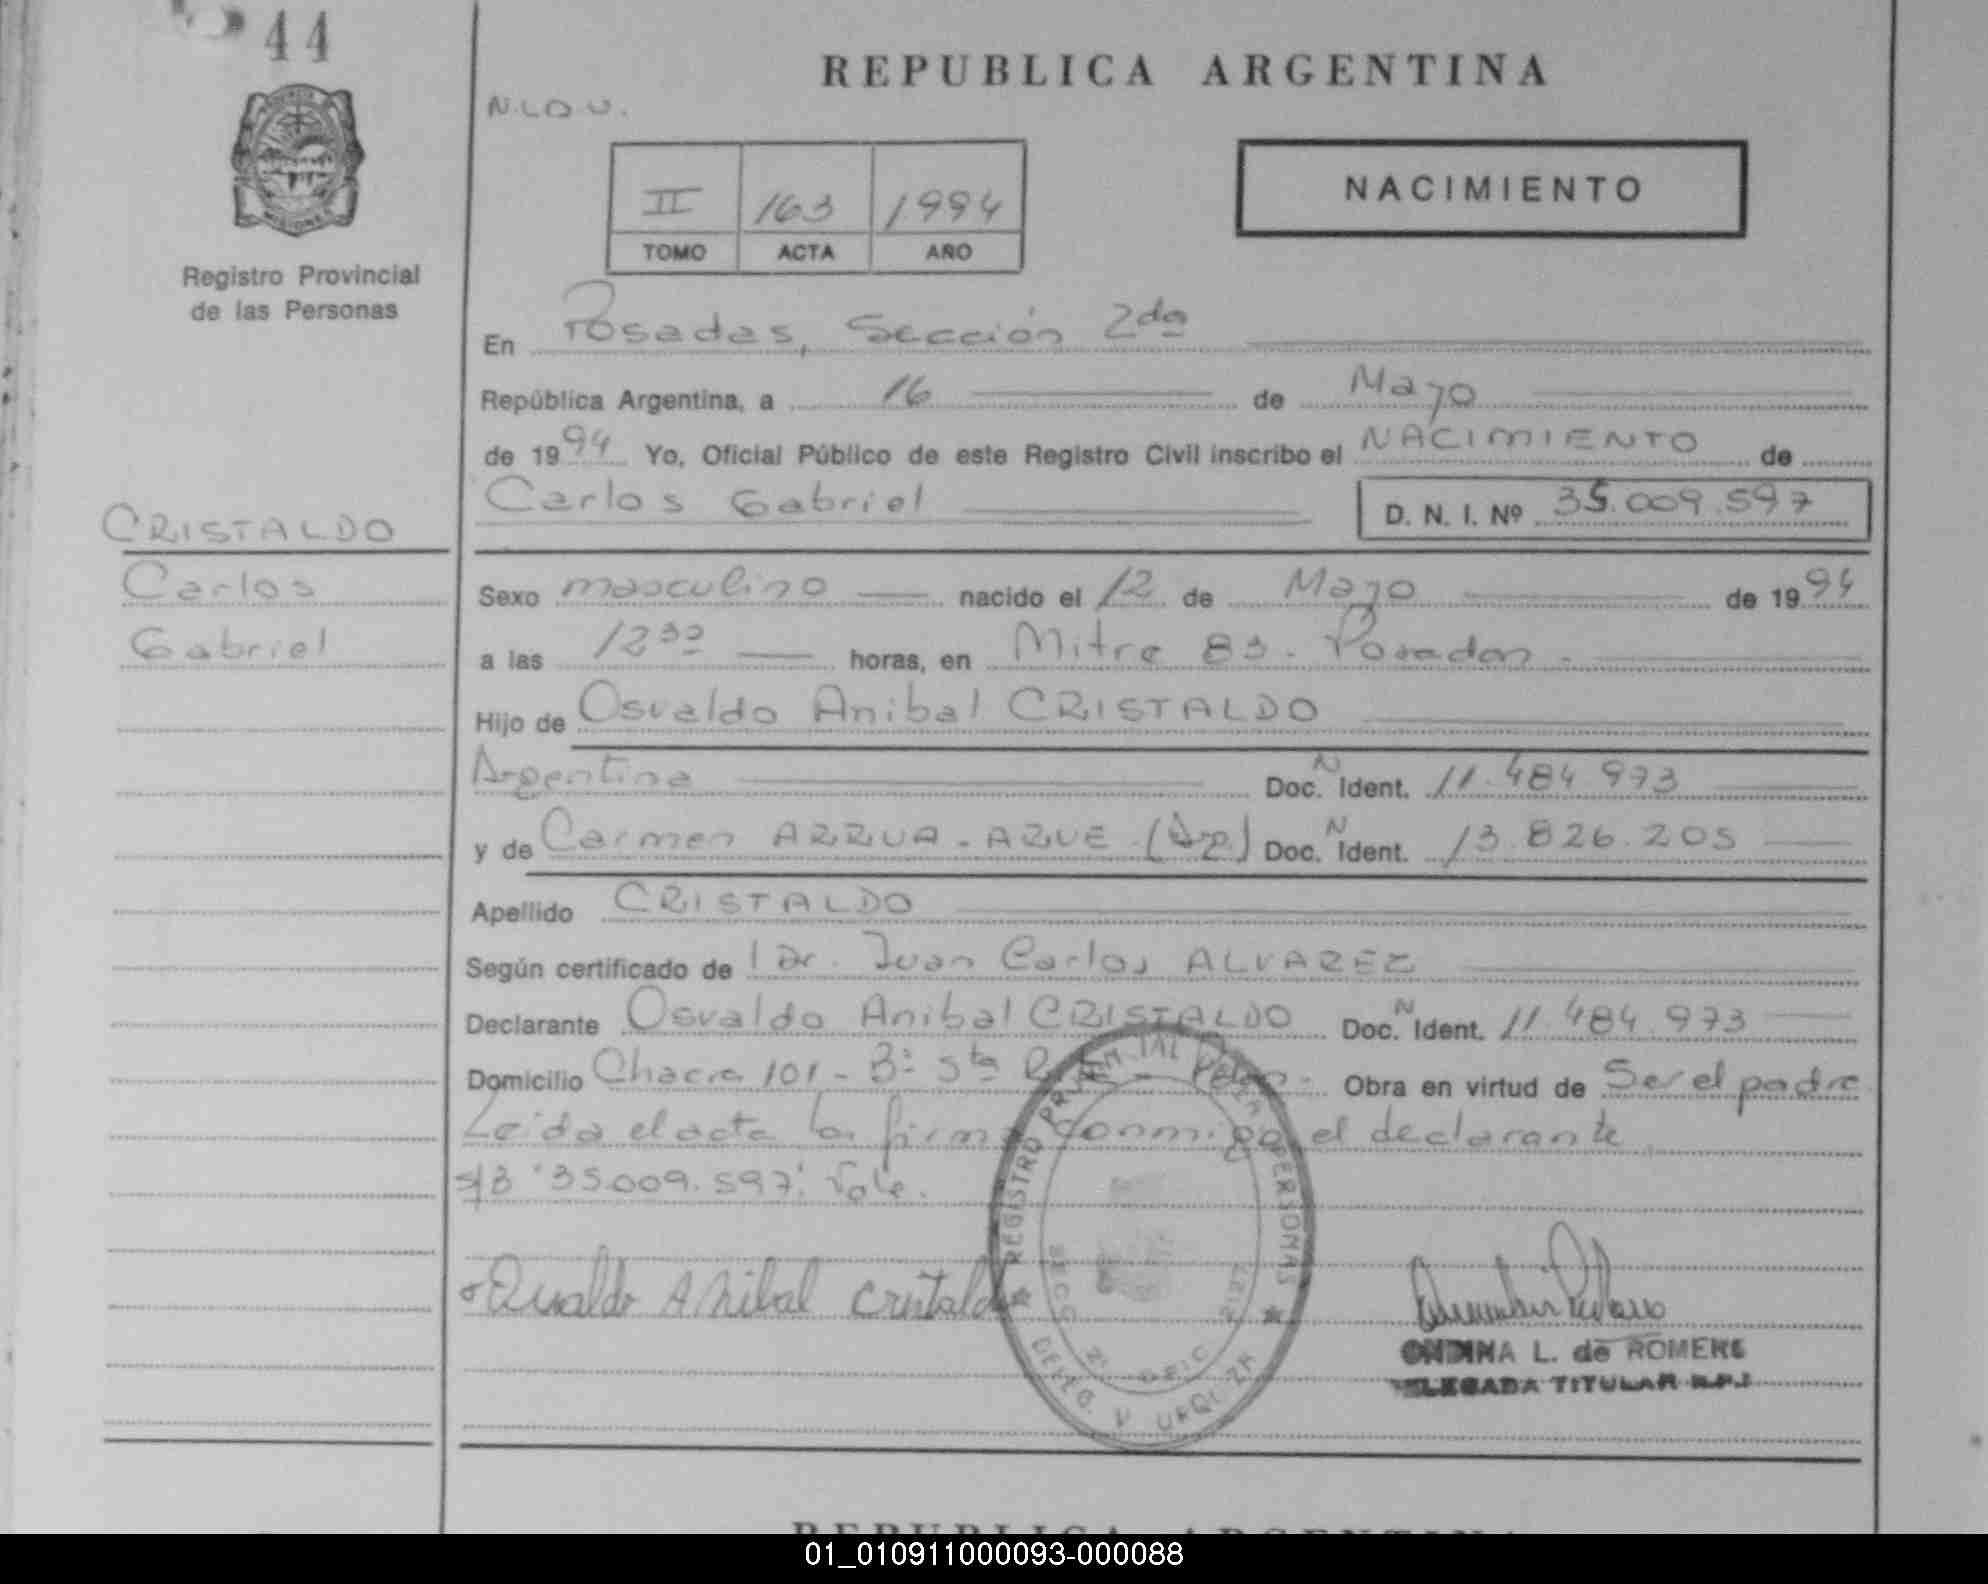 44
REPUBLICA ARGENTINA
N.L.O.U.
II 163 1994
TOMO ACTA AÑO
NACIMIENTO
Registro Provincial
de las Personas
En Posadas, Sección 2da
República Argentina, a 16 de Mayo
de 1994 Yo, Oficial Público de este Registro Civil inscribo el NACIMIENTO de
Carlos Gabriel D. N. I. Nº 35.009.597
CRISTALDO
Carlos
Gabriel
Sexo masculino nacido el 12 de Mayo de 1994
a las 12 30 horas, en Mitre 83. Posadas.
Hijo de Osvaldo Anibal CRISTALDO
Argentina Doc. N Ident. 11.484.973
y de Carmen ARRUA - AZUE (Arg) Doc. N Ident. 13.826.205
Apellido CRISTALDO
Según certificado de l Dr. Juan Carlos ALVAREZ
Declarante Osvaldo Anibal CRISTALDO Doc. N Ident. 11.484.973
Domicilio Chacra 101 - Bº Sta Obra en virtud de Ser el padre
Leida el acta la firma conmigo el declarante
s/B "35.009.597" Vale.
Osvaldo Anibal Cristaldo
REGISTRO PROVINCIAL DE LAS PERSONAS
SECC 2ª OFIC 2127
DELEG. V. URQUIZA
ONDINA L. de ROMERO
DELEGADA TITULAR R.P.P.
REPUBLICA ARGENTINA
01_010911000093-000088